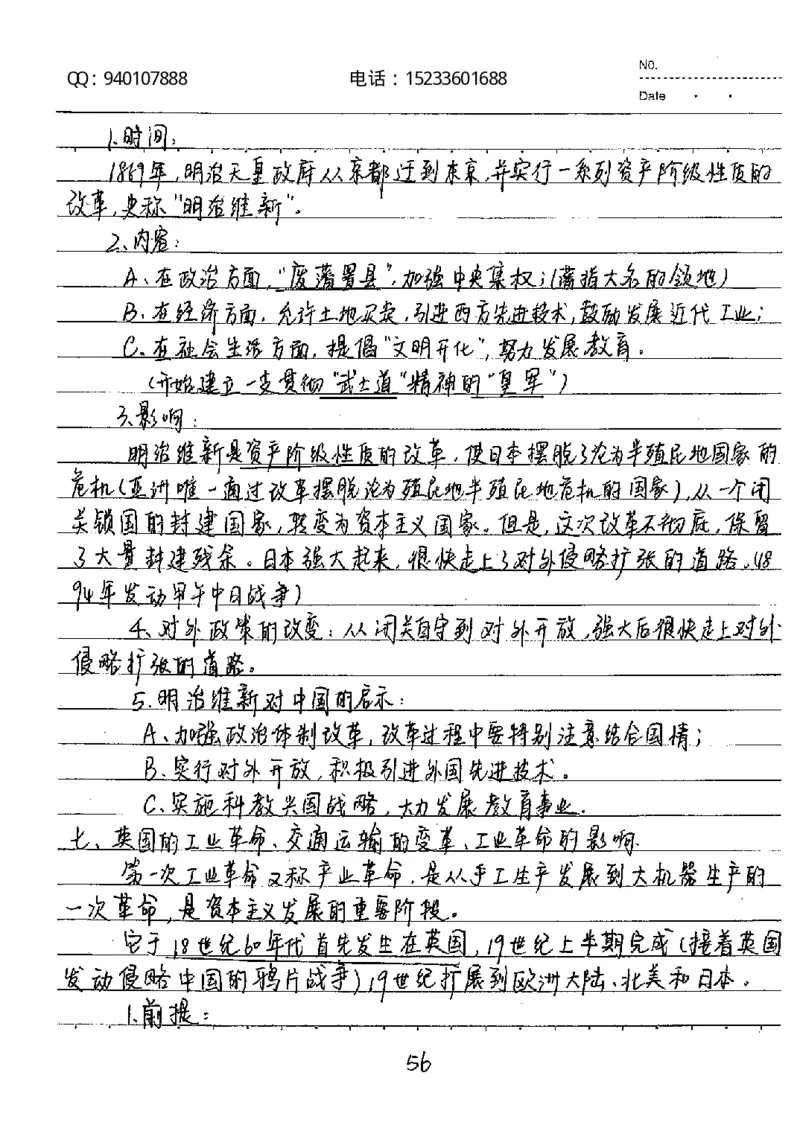 QQ：940107888 电话：15233601688 NO.
Date
1.时间：
1869年，明治天皇政府从京都迁到东京，并实行一系列资产阶级性质的
改革，史称“明治维新”。
2、内容：
A、在政治方面，“废藩置县”，加强中央集权；（藩指大名的领地）
B、在经济方面，允许土地买卖，引进西方先进技术，鼓励发展近代工业；
C、在社会生活方面，提倡“文明开化”，努力发展教育。
（开始建立一支贯彻“武士道”精神的“皇军”）
3、影响：
明治维新是资产阶级性质的改革，使日本摆脱了沦为半殖民地国家的
危机（亚洲唯一通过改革摆脱沦为殖民地半殖民地危机的国家），从一个闭
关锁国的封建国家，转变为资本主义国家。但是，这次改革不彻底，保留
了大量封建残余。日本强大起来，很快走上了对外侵略扩张的道路。（18
94年发动甲午中日战争）
4、对外政策的改变：从闭关自守到对外开放，强大后很快走上对外
侵略扩张的道路。
5.明治维新对中国的启示：
A、加强政治体制改革，改革过程中要特别注意结合国情；
B、实行对外开放，积极引进外国先进技术。
C、实施科教兴国战略，大力发展教育事业.
七、英国的工业革命、交通运输的变革、工业革命的影响.
第一次工业革命又称产业革命，是从手工生产发展到大机器生产的
一次革命，是资本主义发展的重要阶段。
它于18世纪60年代首先发生在英国，19世纪上半期完成（接着英国
发动侵略中国的鸦片战争）19世纪扩展到欧洲大陆、北美和日本。
1.前提：
56